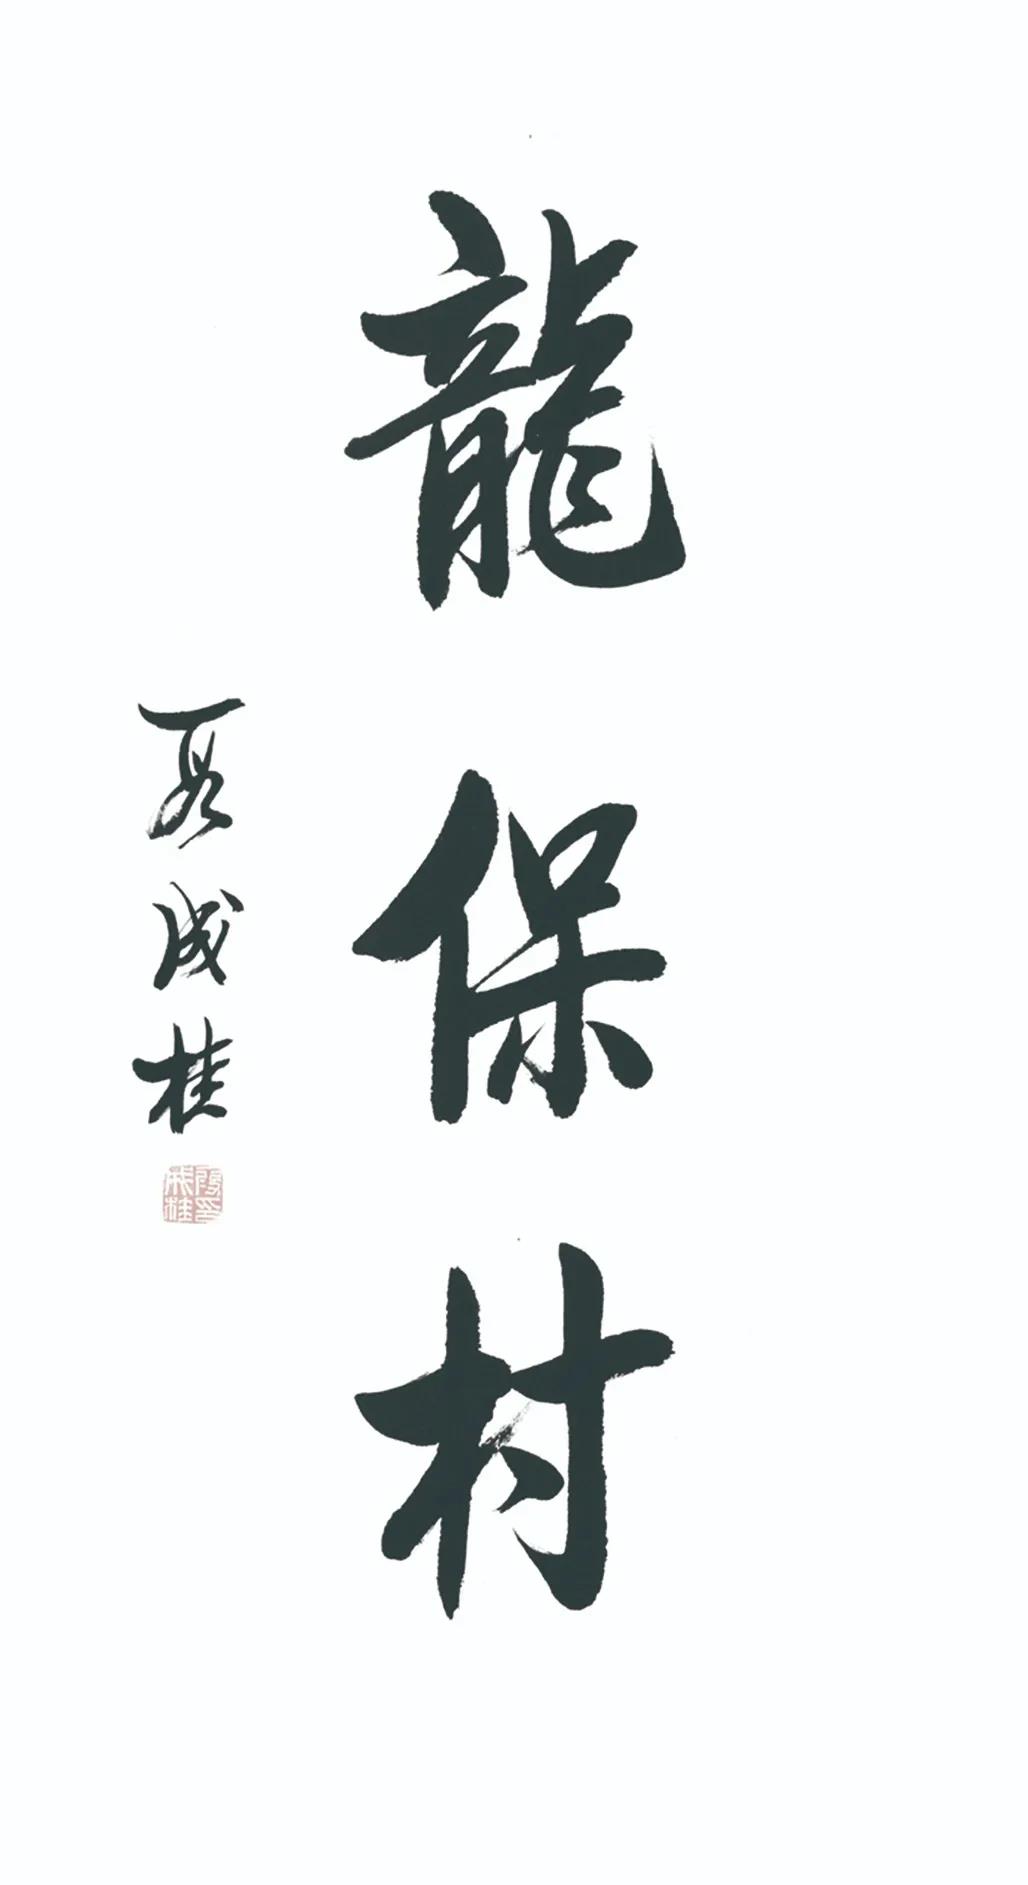 龍保村
夏成桂